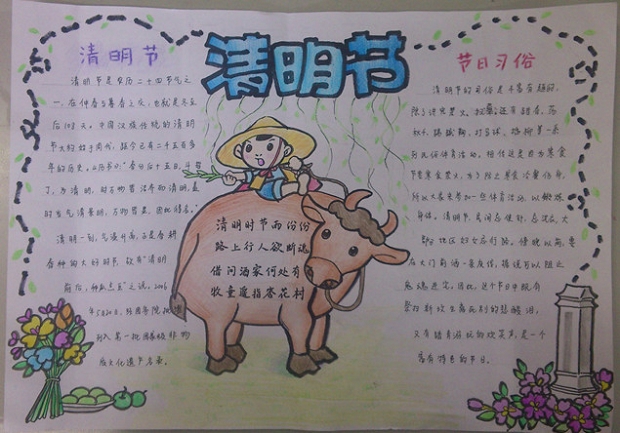 清明节
清明节
清明节是农历二十四节气之
一,在仲春与暮春之交,也就是冬至
后108天。中国汉族传统的清明
节大约始于周代,距今已有二千五百多
年的历史。
清明一到,气温升高,正是春耕
春种的大好时节,故有"清明
前后,种瓜点豆"之说。2006
年5月20日,经国务院批准
列入第一批国家级非物
质文化遗产名录。
清明时节雨份份
路上行人欲断魂
借问酒家何处有
牧童遥指杏花村
节日习俗
清明节的习俗是丰富有趣的,
除了讲究禁火、扫墓,还有踏青、荡
秋千、蹴鞠、打马球、插柳等一系
列风俗体育活动。相传这是因为寒食
节要寒食禁火,为了防止寒食冷餐伤身,
所以大家来参加一些体育活动,以锻炼
身体。清明节,民间忌使针,忌洗衣,大
部分地区妇女忌行路。傍晚以前,要
在大门前洒一条灰线,据说可以阻止
鬼魂进宅。因此,这个节日中既有
祭扫新坟生离死别的悲酸泪,
又有踏青游玩的欢笑声,是一个
富有特色的节日。